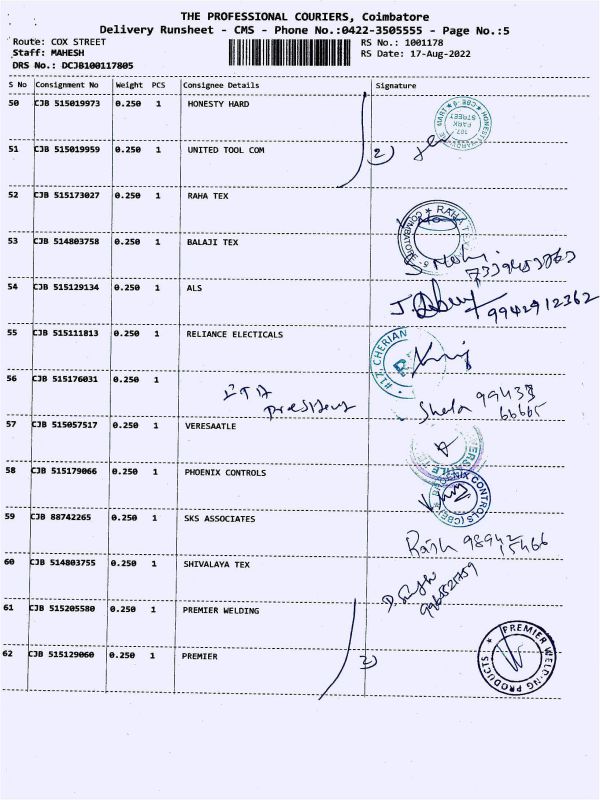 THE PROFESSIONAL COURIERS, Coimbatore
Delivery Runsheet - CMS - Phone No.:0422-3505555 - Page No.:5
Route: COX STREET RS No.: 1001178
Staff: MAHESH RS Date: 17-Aug-2022
DRS No.: DCJB100117805
S No Consignment No Weight PCS Consignee Details Signature
50 CJB 515019973 0.250 1 HONESTY HARD
51 CJB 515019959 0.250 1 UNITED TOOL COM 2)
52 CJB 515173027 0.250 1 RAHA TEX
RAHA TEX
COIMBATORE
53 CJB 514803758 0.250 1 BALAJI TEX
54 CJB 515129134 0.250 1 ALS
9942912362
55 CJB 515111813 0.250 1 RELIANCE ELECTICALS
#17, CHERIAN
56 CJB 515176031 0.250 1
99433
66665
57 CJB 515057517 0.250 1 VERESAATLE
58 CJB 515179066 0.250 1 PHOENIX CONTROLS
PHOENIX CONTROLS (CBE)
59 CJB 88742265 0.250 1 SKS ASSOCIATES
98942
15466
60 CJB 514803755 0.250 1 SHIVALAYA TEX
61 CJB 515205580 0.250 1 PREMIER WELDING
62 CJB 515129060 0.250 1 PREMIER 2)
PREMIER WELDING PRODUCTS